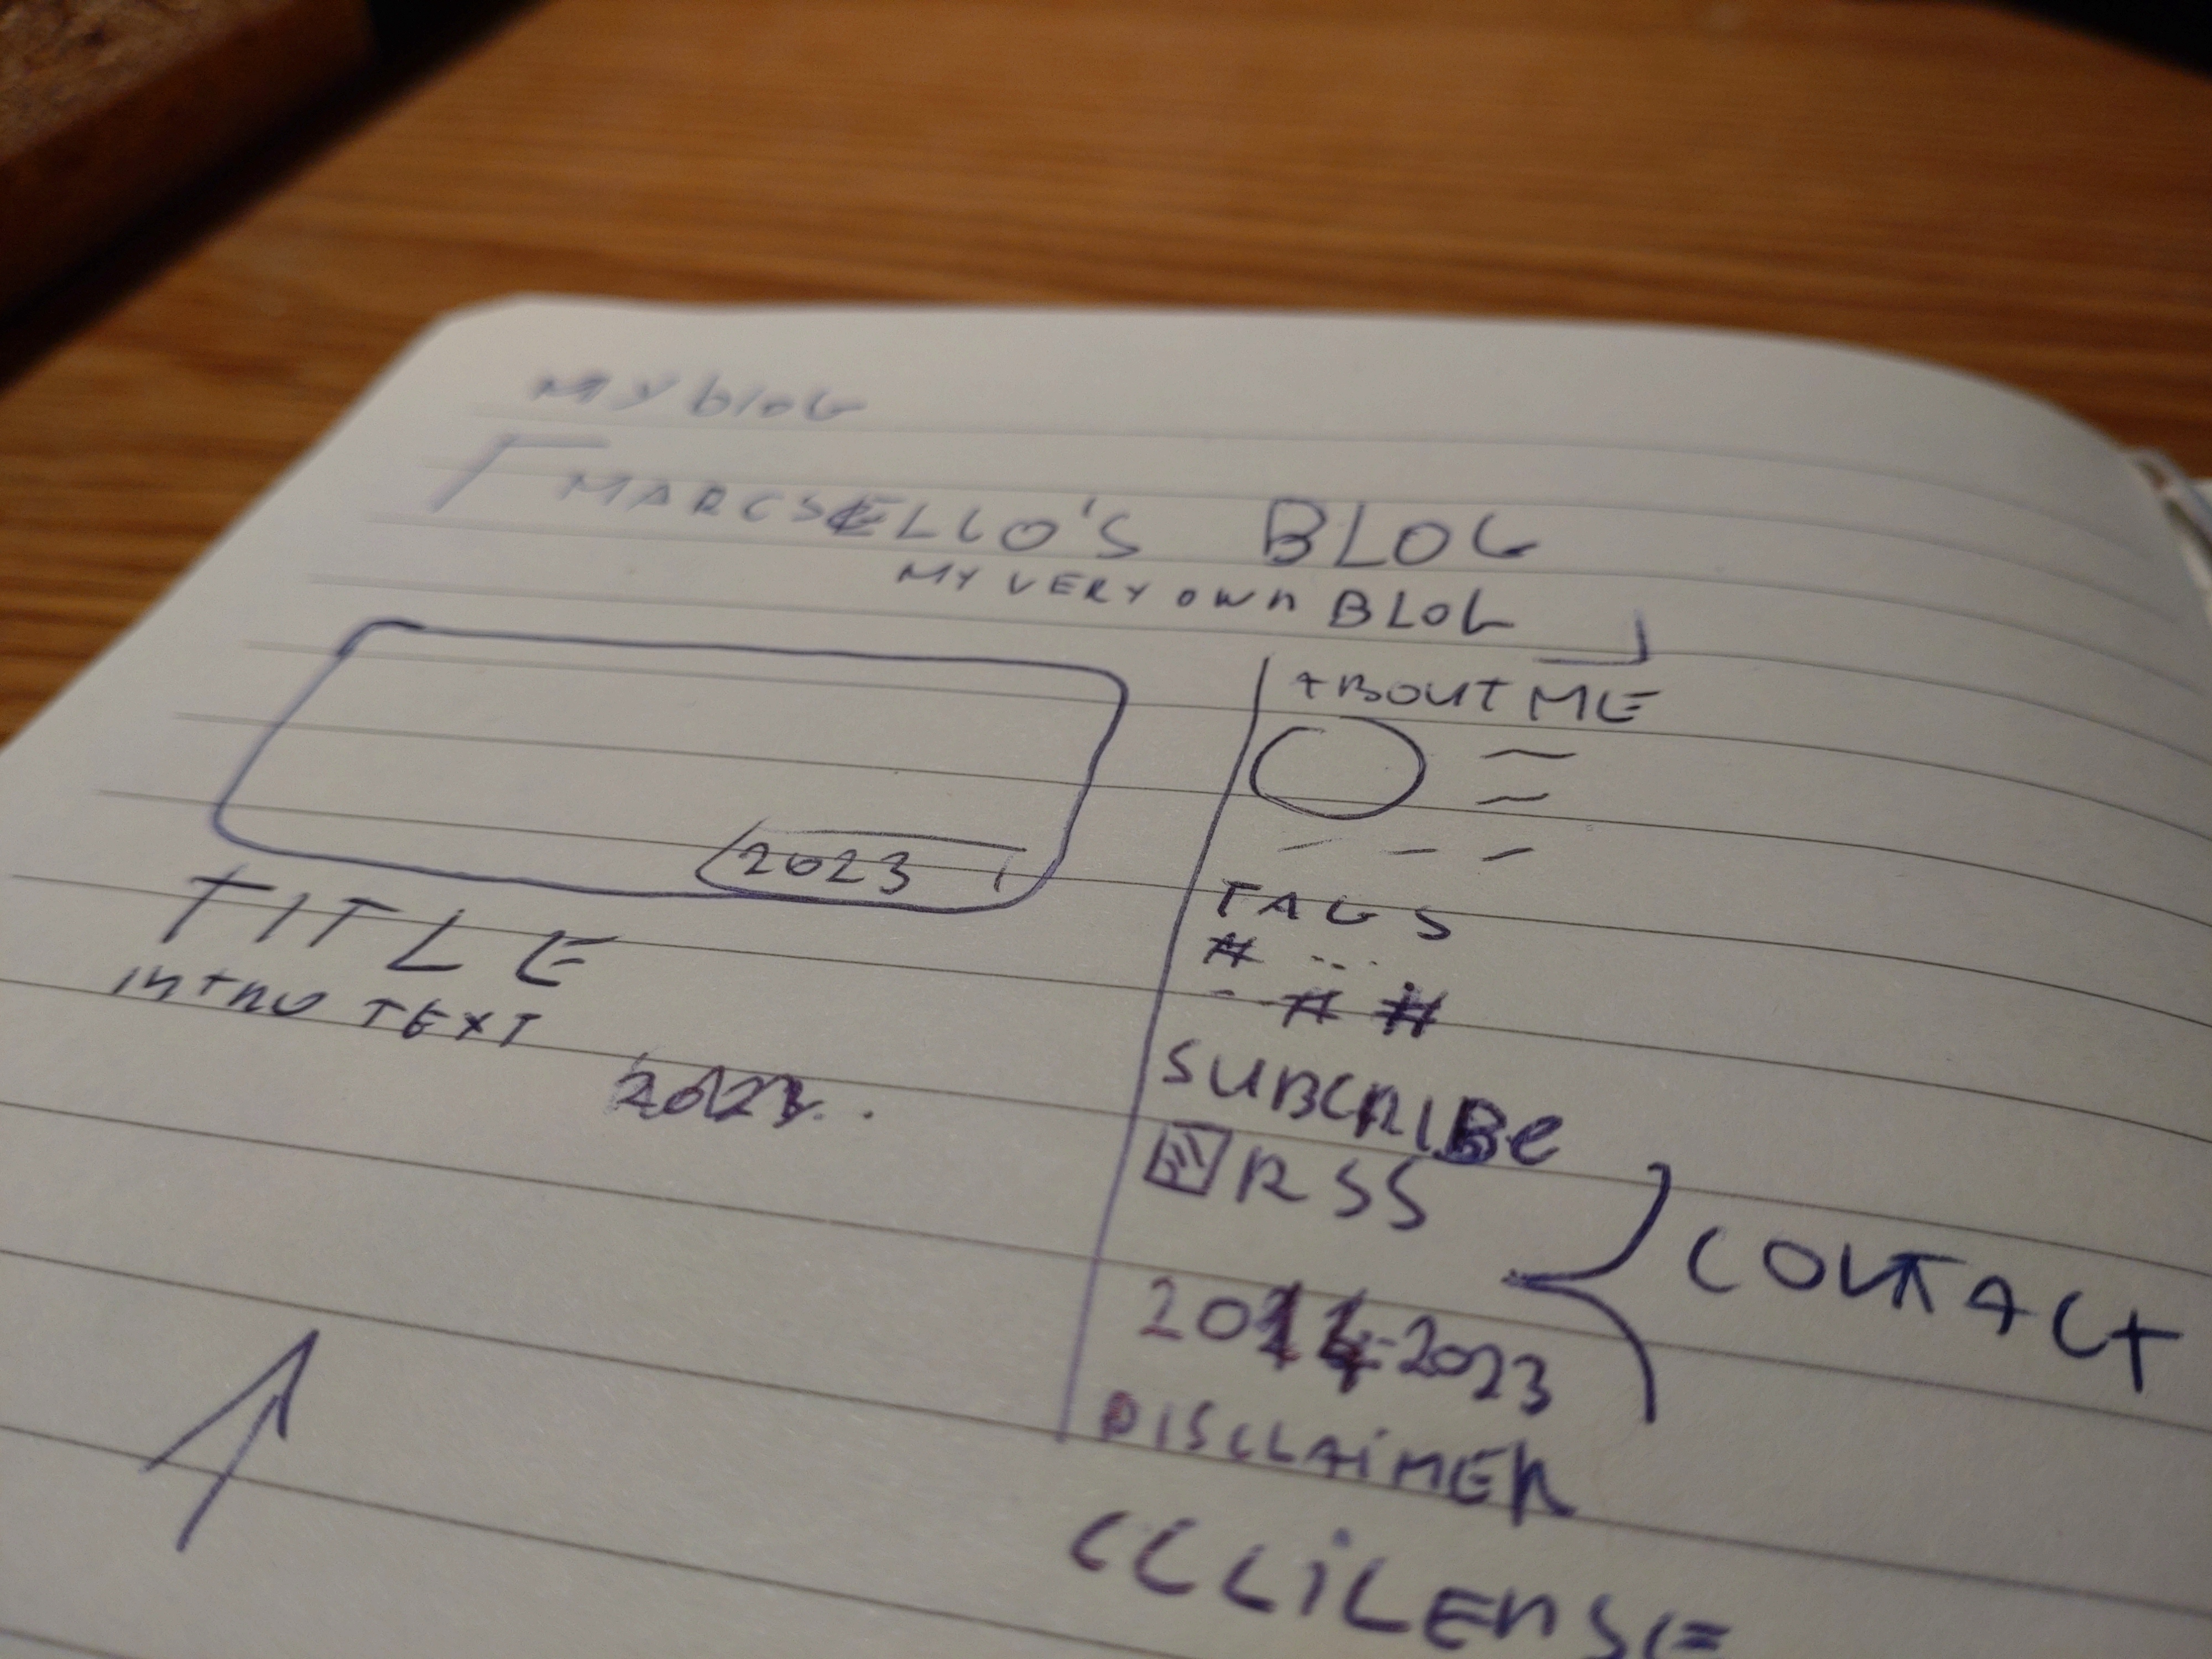 MY bloG
MARCSELLO'S BLOG
MY VERY OWN BLOG
2023
TITLE
INTRO TEXT
ABOUT ME
TAGS
# ...
--# #
SUBCRIBE
RSS
CONTACT
2014-2023
DISCLAIMER
CC LiCENSE